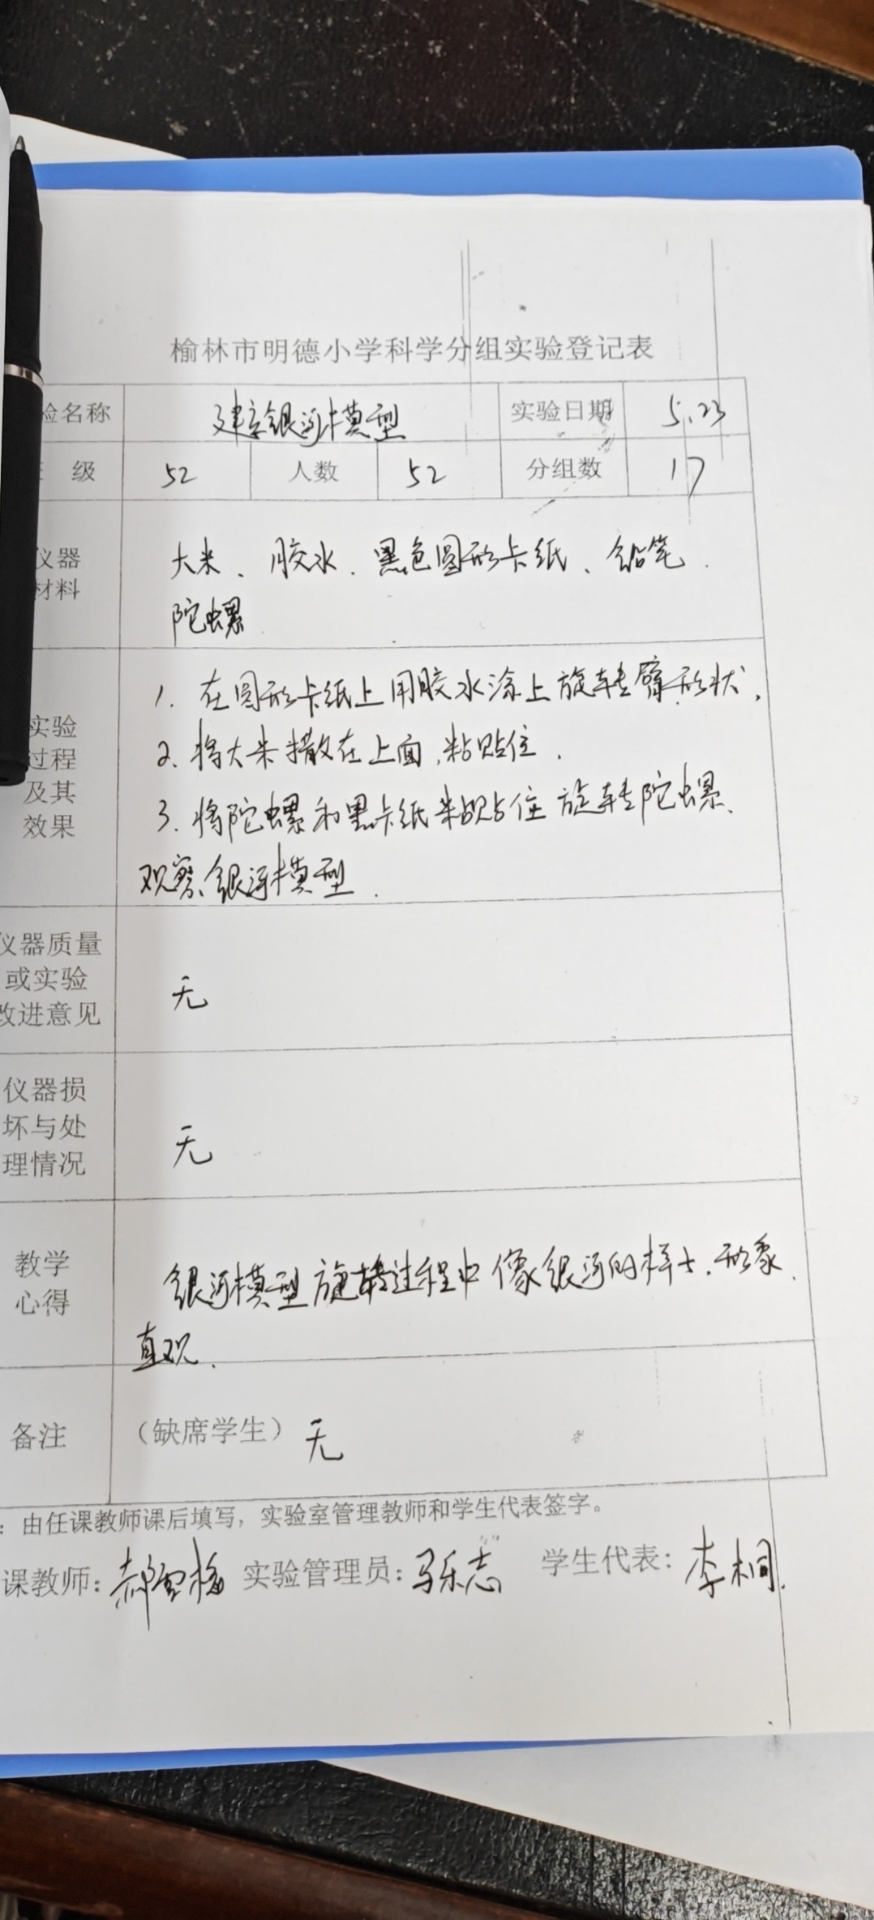 榆林市明德小学科学分组实验登记表
验名称 建立银河模型 实验日期 5.23
级 52 人数 52 分组数 17
仪器
材料
大米、胶水、黑色圆形卡纸、铅笔、
陀螺
实验
过程
及其
效果
1. 在圆形卡纸上用胶水涂上旋转臂形状。
2. 将大米撒在上面,粘贴住.
3. 将陀螺和黑卡纸粘贴住旋转陀螺、
观察银河模型.
仪器质量
或实验
改进意见
无
仪器损
坏与处
理情况
无
教学
心得
银河模型旋转过程中像银河的样子、形象、
直观.
备注 (缺席学生) 无
:由任课教师课后填写,实验室管理教师和学生代表签字。
课教师: 郝雪梅 实验管理员: 马乐志 学生代表: 李桐.